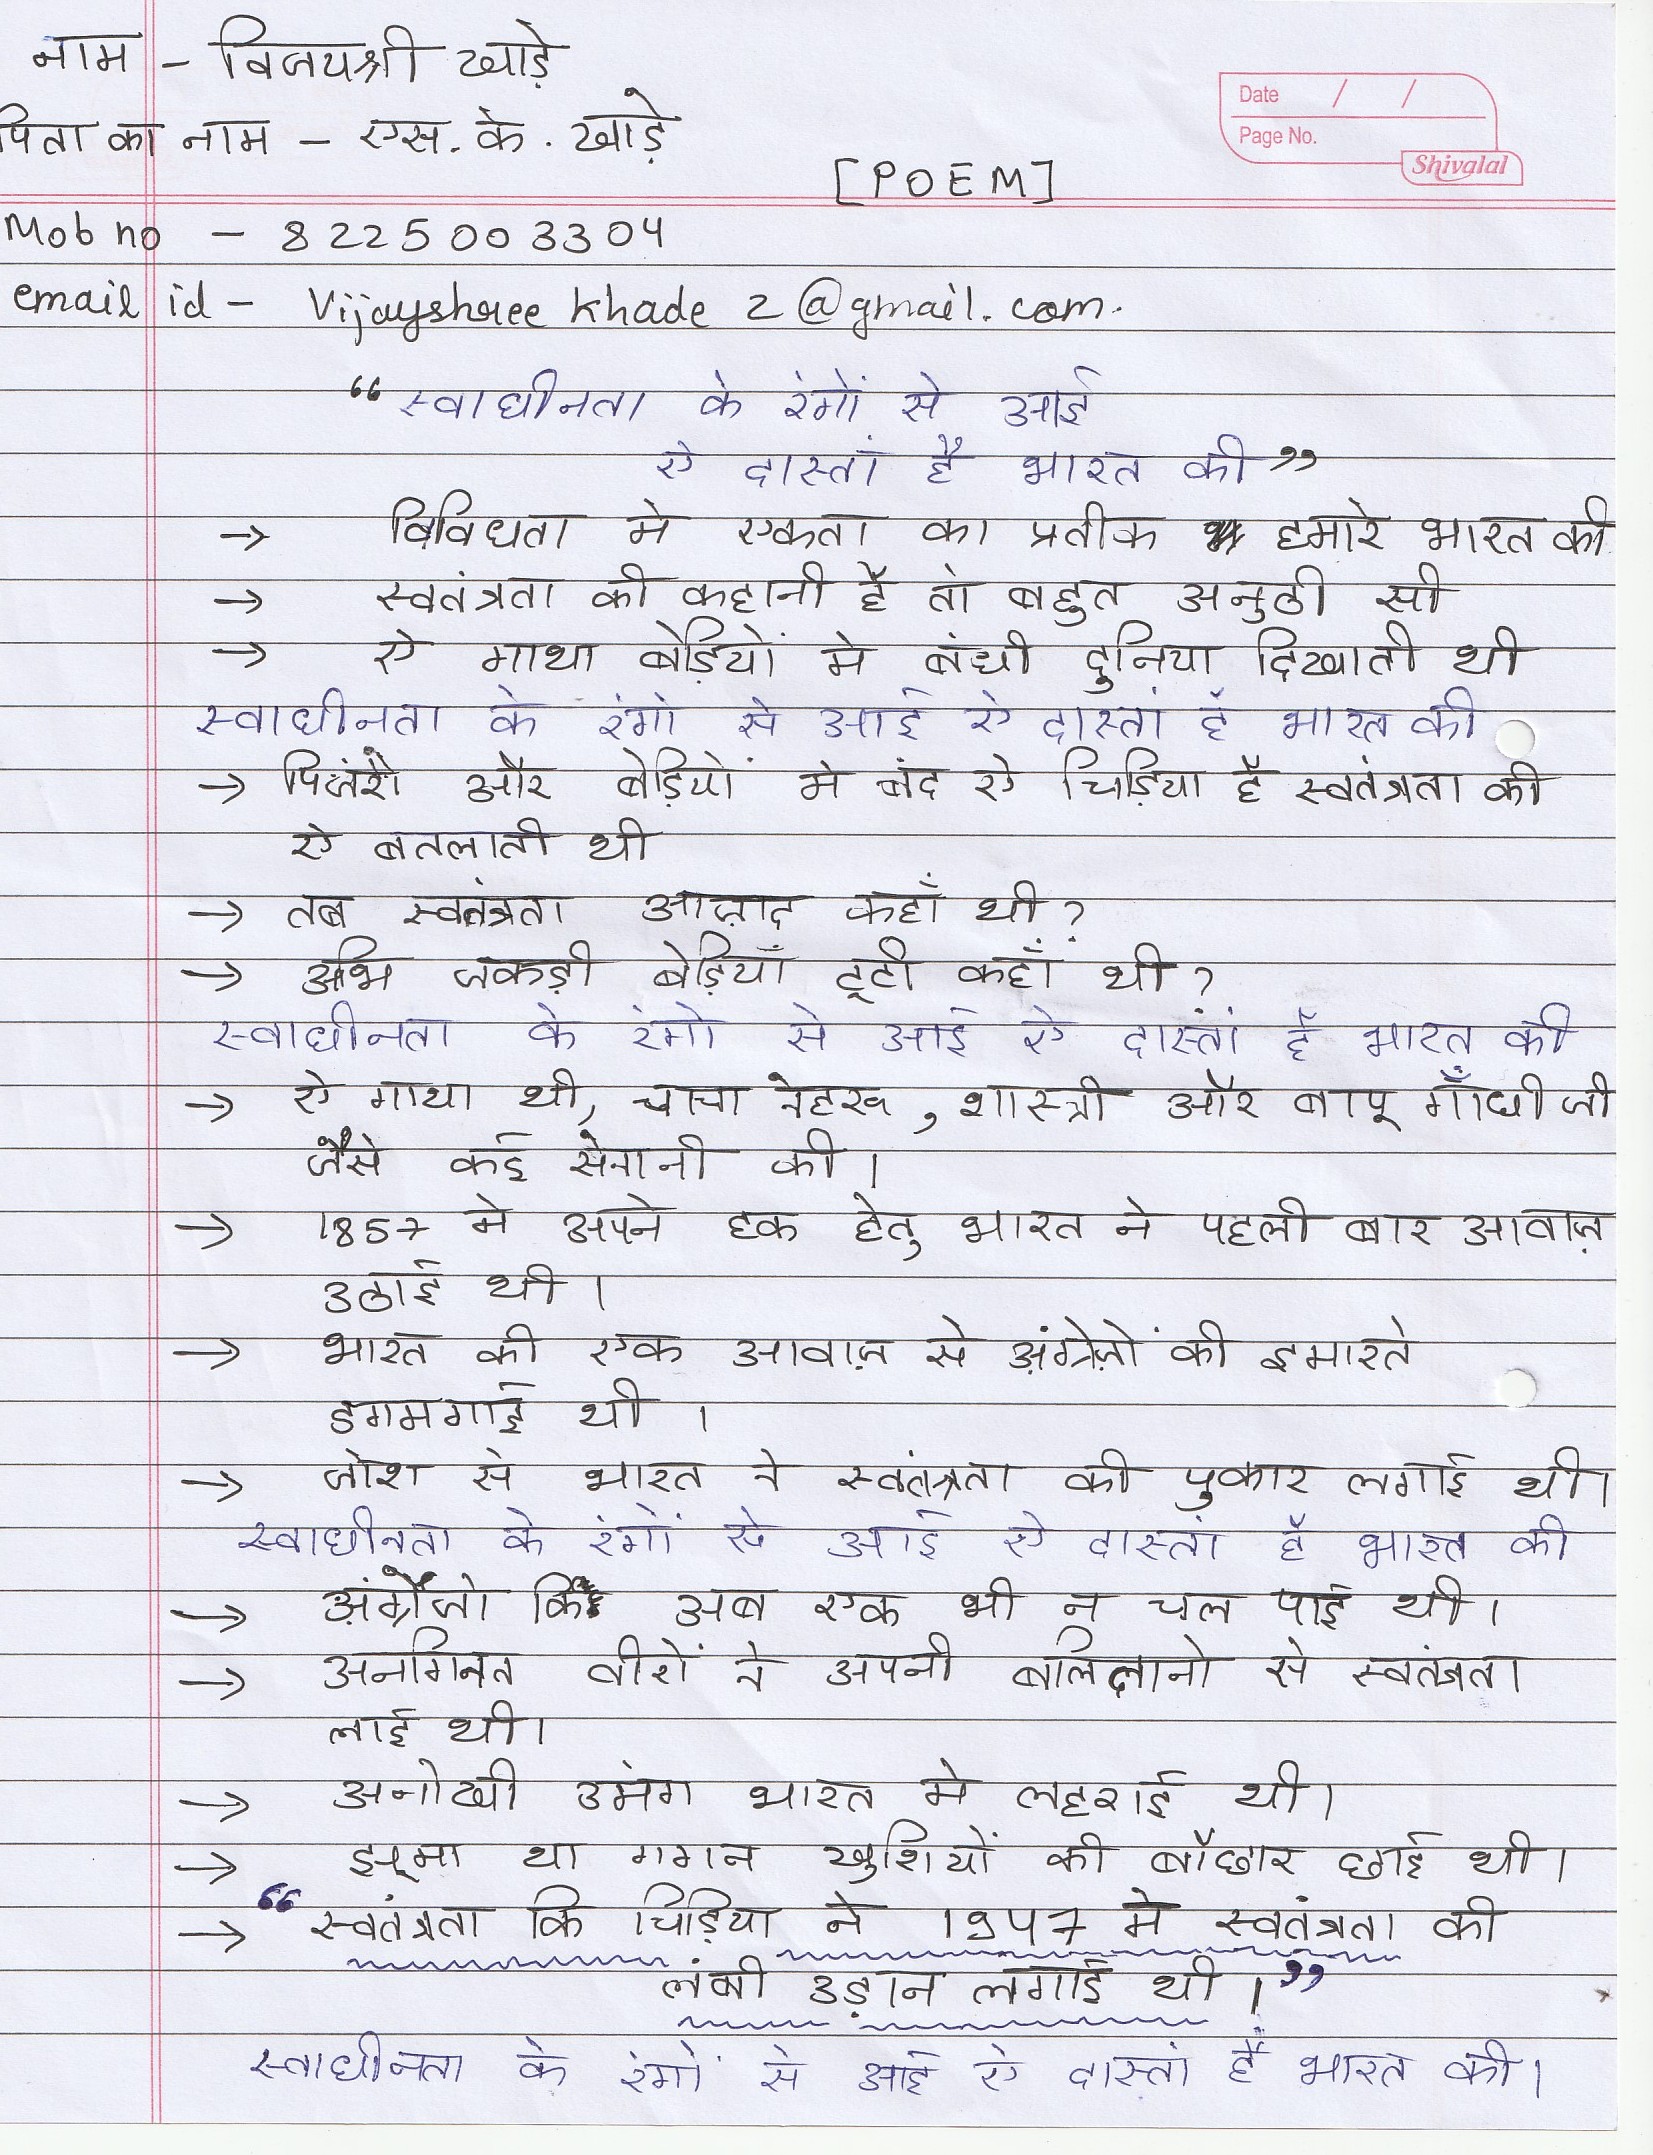 नाम - विजयश्री खाड़े
Date / /
पिता का नाम - एस. के. खाड़े
Page No.
Shivalal
[POEM]
Mob no - 8225003304
email id - Vijayshree khade 2@gmail.com.
“स्वाधीनता के रंगों से आई
ऐ दास्तां है भारत की”
→ विविधता मे एकता का प्रतीक हमारे भारत की
→ स्वतंत्रता की कहानी है तो बहुत अनुठी सी
→ ऐ गाथा बेड़ियों मे बंधी दुनिया दिखाती थी
स्वाधीनता के रंगो से आई ऐ दास्तां है भारत की
→ पिजंरो और बेड़ियों मे बंद ऐ चिड़िया है स्वतंत्रता की
ऐ बतलाती थी
→ तब स्वतंत्रता आज़ाद कहाँ थी?
→ अभि जकड़ी बेड़ियाँ टूटी कहाँ थी?
स्वाधीनता के रंगो से आई ऐ दास्तां है भारत की
→ ऐ गाथा थी, चाचा नेहरू, शास्त्री और बापू गाँधी जी
जैसे कई सेनानी की।
→ 1857 मे अपने हक हेतु भारत ने पहली बार आवाज़
उठाई थी।
→ भारत की एक आवाज़ से अंग्रेज़ों की इमारते
डगमगाई थी।
→ जोश से भारत ने स्वतंत्रता की पुकार लगाई थी।
स्वाधीनता के रंगों से आई ऐ दास्तां है भारत की
→ अंग्रेजो कि अब एक भी न चल पाई थी।
→ अनगिनत वीरों ने अपनी बलिदानो से स्वतंत्रता
लाई थी।
→ अनोखी उमंग भारत मे लहराई थी।
→ झूमा था गगन खुशियों की बौछार छाई थी।
→ “स्वतंत्रता कि चिड़िया ने 1947 मे स्वतंत्रता की
लंबी उड़ान लगाई थी।”
स्वाधीनता के रंगों से आई ऐ दास्तां है भारत की।